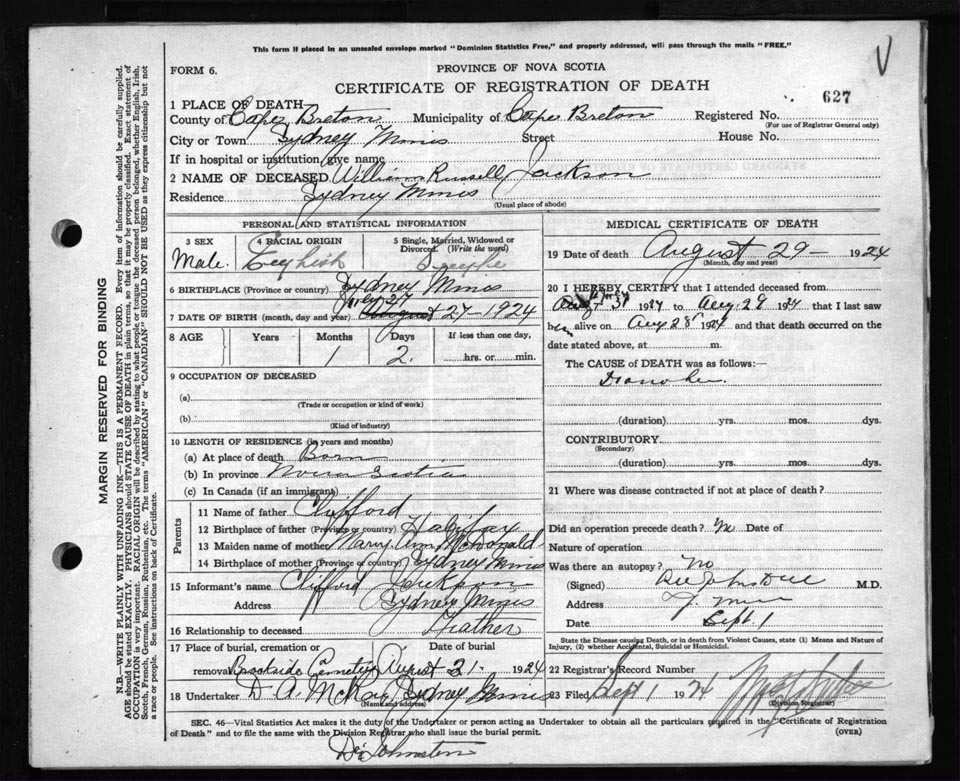 This form if placed in an unsealed envelope marked "Dominion Statistics Free," and properly addressed, will pass through the mails "FREE."
FORM 6.
PROVINCE OF NOVA SCOTIA
CERTIFICATE OF REGISTRATION OF DEATH
627
1 PLACE OF DEATH
County of Cape Breton Municipality of Cape Breton Registered No.
(For use of Registrar General only)
City or Town Sydney Mines Street House No.
If in hospital or institution, give name
2 NAME OF DECEASED William Russell Jackson
Residence Sydney Mines
(Usual place of abode)
PERSONAL AND STATISTICAL INFORMATION
3 SEX 4 RACIAL ORIGIN 5 Single, Married, Widowed or Divorced. (Write the word)
Male. English Single
6 BIRTHPLACE (Province or country) Sydney Mines
July 27
7 DATE OF BIRTH (month, day and year) August 27-1924
8 AGE Years Months Days If less than one day,
1 2. hrs. or min.
9 OCCUPATION OF DECEASED
(a)
(Trade or occupation or kind of work)
(b)
(Kind of industry)
10 LENGTH OF RESIDENCE (in years and months)
(a) At place of death Born
(b) In province Nova Scotia
(c) In Canada (if an immigrant)
Parents
11 Name of father Clifford
12 Birthplace of father (Province or country) Halifax
13 Maiden name of mother Mary Ann McDonald
14 Birthplace of mother (Province or country) Sydney Mines
15 Informant's name Clifford Jackson
Address Sydney Mines
16 Relationship to deceased Father
17 Place of burial, cremation or removal Date of burial
Brookside Cemetery August 31. 1924
18 Undertaker D. A. McKay, Sydney Mines
(Name and address)
MEDICAL CERTIFICATE OF DEATH
19 Date of death August 29- 1924
(Month, day and year)
20 I HEREBY CERTIFY that I attended deceased from
1924 to Aug. 28 1924 that I last saw
him alive on Aug 28 1924 and that death occurred on the
date stated above, at m.
The CAUSE OF DEATH was as follows:—
(duration) yrs. mos. dys.
CONTRIBUTORY
(Secondary)
(duration) yrs. mos. dys.
21 Where was disease contracted if not at place of death?
Did an operation precede death? Date of
Nature of operation
Was there an autopsy? No
(Signed) M.D.
Address
Date Sept. 1
State the Disease causing Death, or in death from Violent Causes, state (1) Means and Nature of Injury, (2) whether Accidental, Suicidal or Homicidal.
22 Registrar's Record Number
23 Filed Sept 1 1924
(Division Registrar)
SEC. 46—Vital Statistics Act makes it the duty of the Undertaker or person acting as Undertaker to obtain all the particulars required in the "Certificate of Registration
of Death" and to file the same with the Division Registrar who shall issue the burial permit. (OVER)
Dr Johnston
MARGIN RESERVED FOR BINDING
N.B.—WRITE PLAINLY WITH UNFADING INK—THIS IS A PERMANENT RECORD. Every item of information should be carefully supplied.
AGE should be stated EXACTLY. PHYSICIANS should STATE CAUSE OF DEATH in plain terms, so that it may be properly classified. Exact statement of
OCCUPATION is very important. RACIAL ORIGIN will be described by stating to what people or tongue the deceased person belonged, whether English, Irish,
Scotch, French, German, Russian, Ruthenian, etc. The terms "AMERICAN" or "CANADIAN" SHOULD NOT BE USED as they express citizenship but not
a race or people. See instructions on back of Certificate.